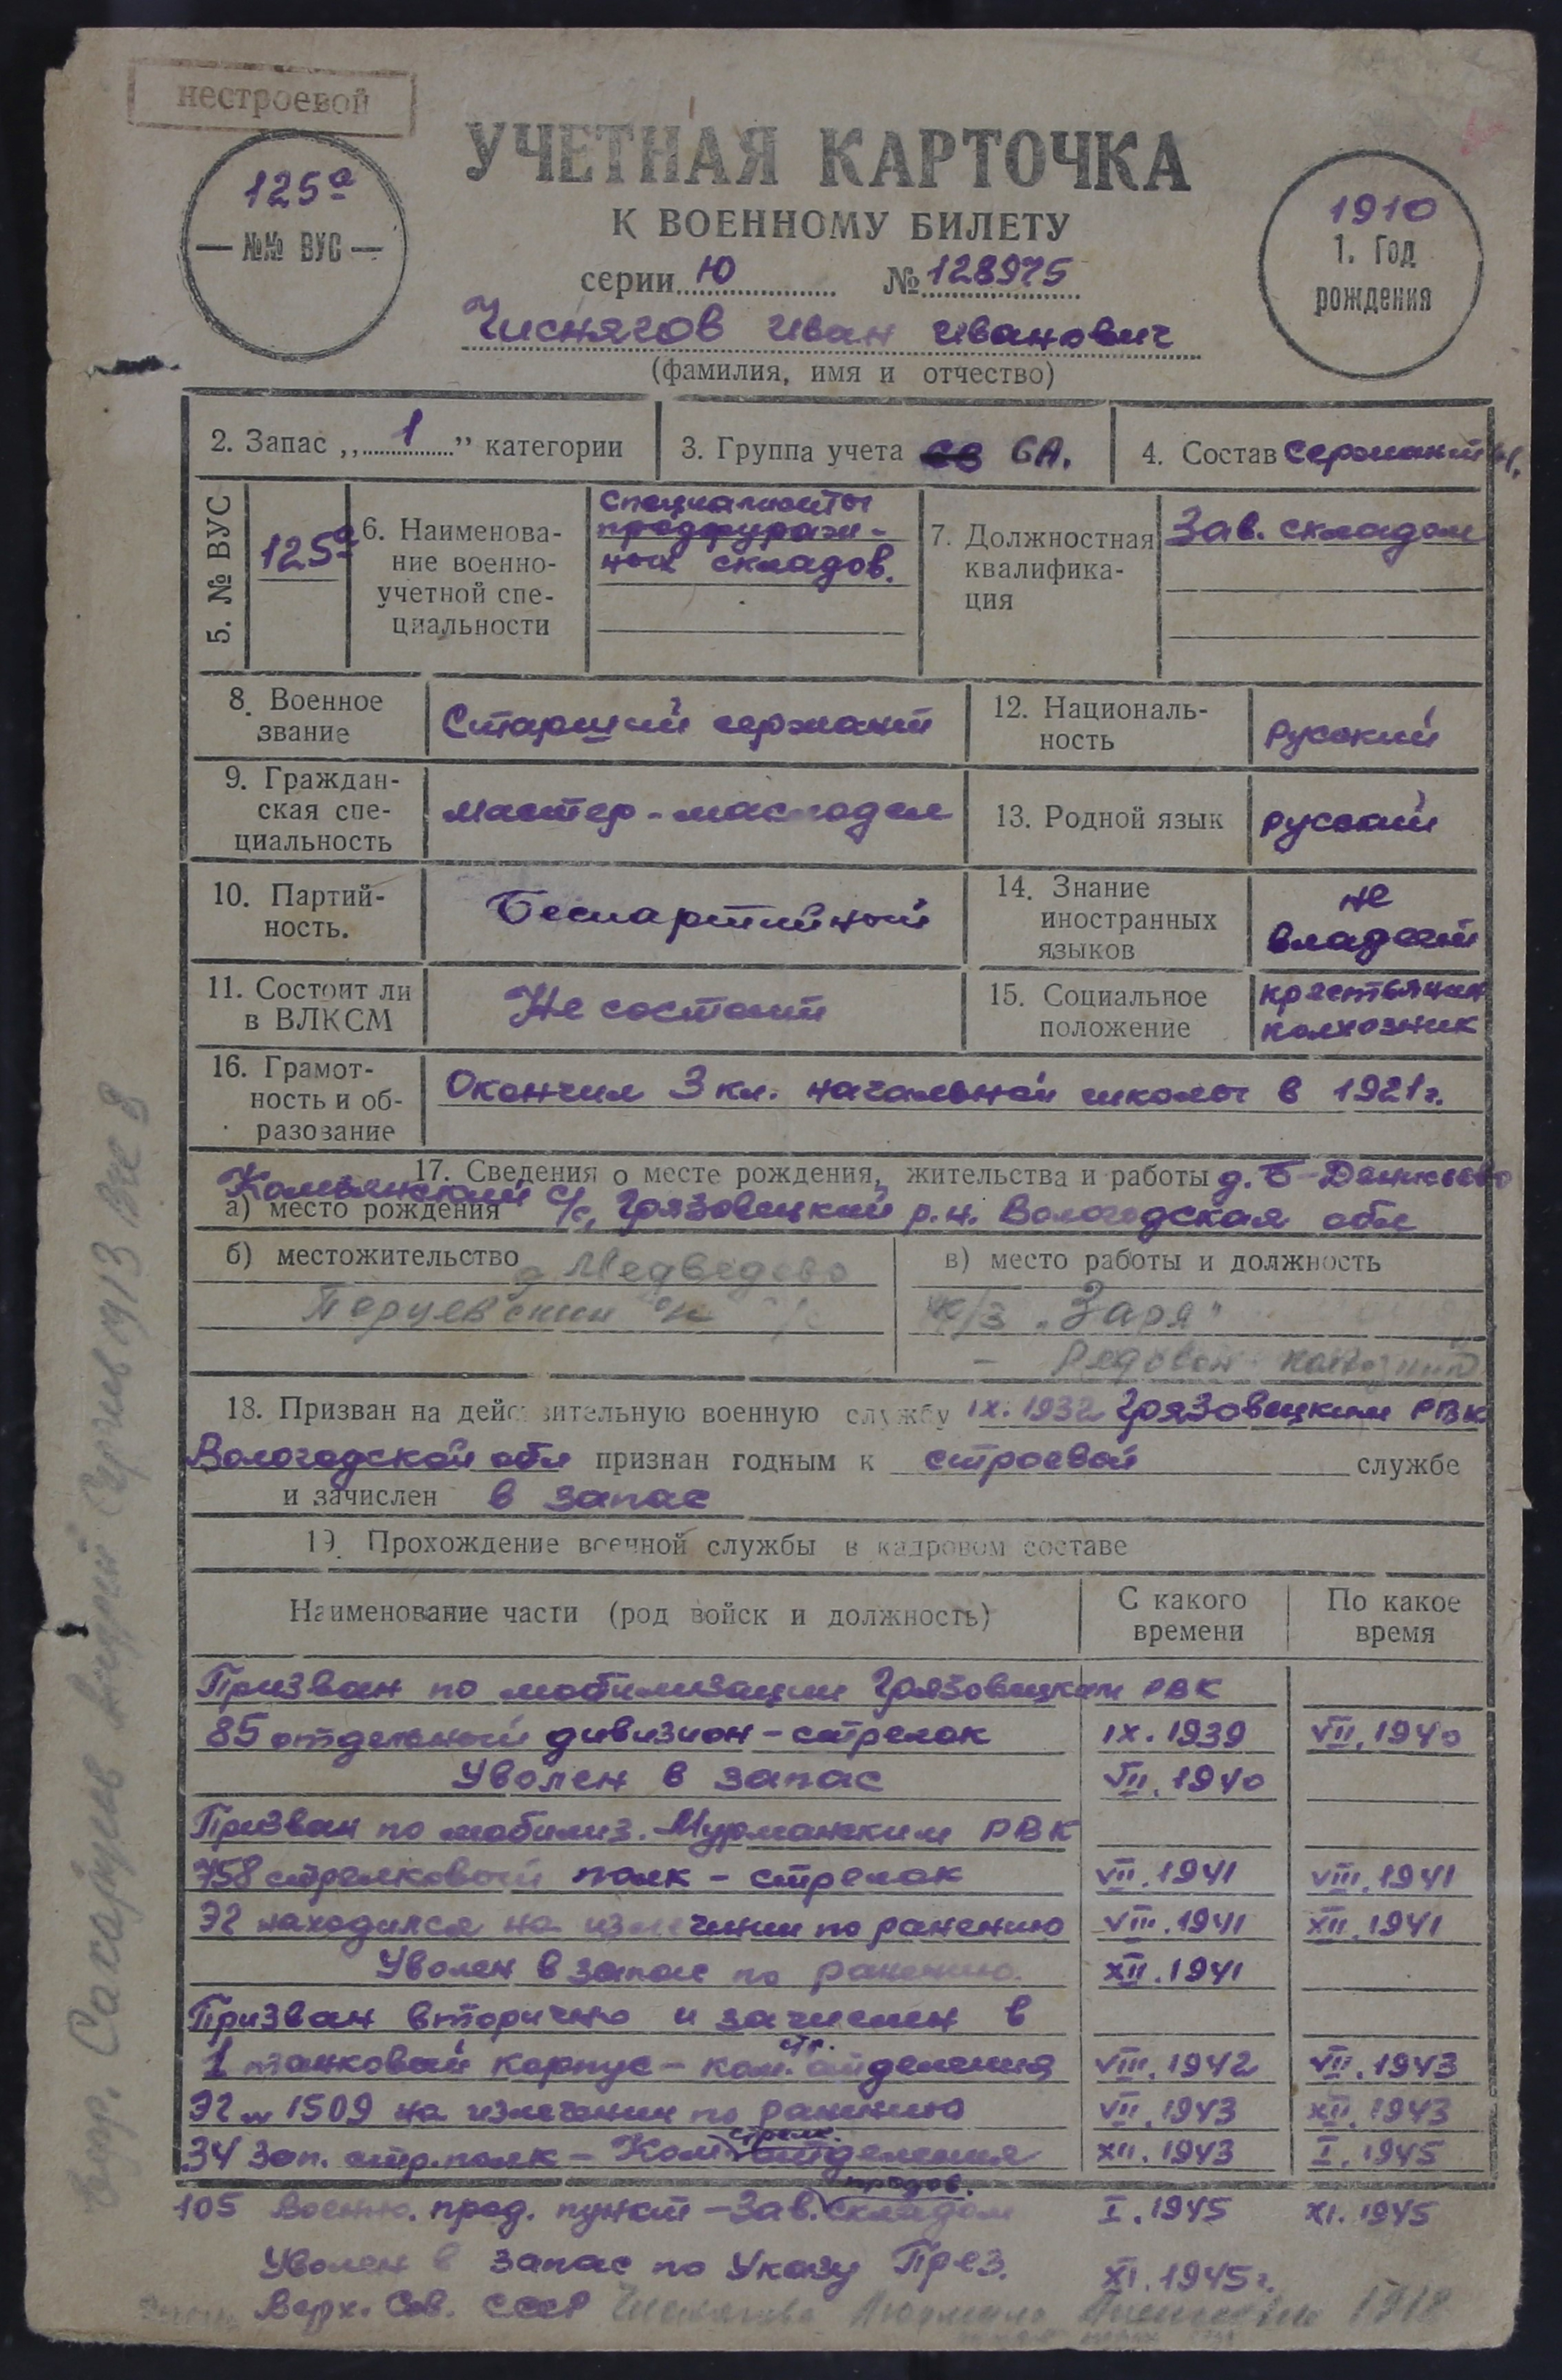 нестроевой
УЧЕТНАЯ КАРТОЧКА
К ВОЕННОМУ БИЛЕТУ
125а
— №№ ВУС —
1910
1. Год
рождения
серии Ю № 128975
Чиснягов Иван Иванович
(фамилия, имя и отчество)
2. Запас „ 1 ” категории
3. Группа учета СА.
4. Состав Сержант
5. № ВУС
125а
6. Наименова-
ние военно-
учетной спе-
циальности
Специалисты
продфураж-
ных складов.
7. Должностная
квалифика-
ция
Зав. складом
8. Военное
звание
Старший сержант
12. Националь-
ность
русский
9. Граждан-
ская спе-
циальность
мастер-маслодел
13. Родной язык
русский
10. Партий-
ность.
Беспартийный
14. Знание
иностранных
языков
не
владеет
11. Состоит ли
в ВЛКСМ
Не состоит
15. Социальное
положение
крестьянин
колхозник
16. Грамот-
ность и об-
разование
Окончил 3 кл. начальной школы в 1921г.
17. Сведения о месте рождения, жительства и работы д. Б-
а) место рождения с/с, Грязовецкий р.н. Вологодская обл
б) местожительство д Медведево
в) место работы и должность
к/з „Заря"
- Рядовой колхозник
18. Призван на действительную военную службу IX. 1932 Грязовецким РВК
Вологодской обл признан годным к строевой службе
и зачислен в запас
19. Прохождение военной службы в кадровом составе
Наименование части (род войск и должность)
С какого
времени
По какое
время
Призван по мобилизации Грязовецким РВК
85 отдельный дивизион - стрелок IX. 1939 VII. 1940
Уволен в запас VII. 1940
Призван по мобилиз. Мурманским РВК
758 стрелковый полк - стрелок VII. 1941 VIII. 1941
ЭГ находился на излечении по ранению VIII. 1941 XII. 1941
Уволен в запас по ранению. XII. 1941
Призван вторично и зачислен в
1 танковый корпус - ком. стр. отделения VIII. 1942 VII. 1943
ЭГ № 1509 на излечении по ранению VII. 1943 XII. 1943
34 зап. стр. полк - Ком. стрелк. отделения XII. 1943 I. 1945
105 Военно. прод. пункт - Зав. продов. складом I. 1945 XI. 1945
Уволен в запас по Указу През. XI. 1945г.
Верх. Сов. СССР 1918